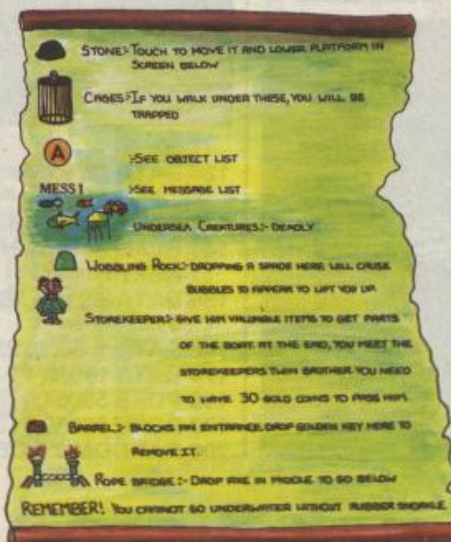 STONE:- TOUCH TO MOVE IT AND LOWER PLATFORM IN
SCREEN BELOW
CAGES:- IF YOU WALK UNDER THESE, YOU WILL BE
TRAPPED
A
:-SEE OBJECT LIST
MESS 1
:-SEE MESSAGE LIST
UNDERSEA CREATURES:- DEADLY
WOBBLING ROCK:- DROPPING A SPADE HERE WILL CAUSE
BUBBLES TO APPEAR TO LIFT YOU UP.
STOREKEEPER:- GIVE HIM VALUABLE ITEMS TO GET PARTS
OF THE BOAT. AT THE END, YOU MEET THE
STOREKEEPERS TWIN BROTHER YOU NEED
TO HAVE 30 GOLD COINS TO PASS HIM.
BARREL:- BLOCKS AN ENTRANCE. DROP GOLDEN KEY HERE TO
REMOVE IT.
ROPE BRIDGE:- DROP AXE IN MIDDLE TO GO BELOW
REMEMBER! YOU CANNOT GO UNDERWATER WITHOUT RUBBER SNORKLE.